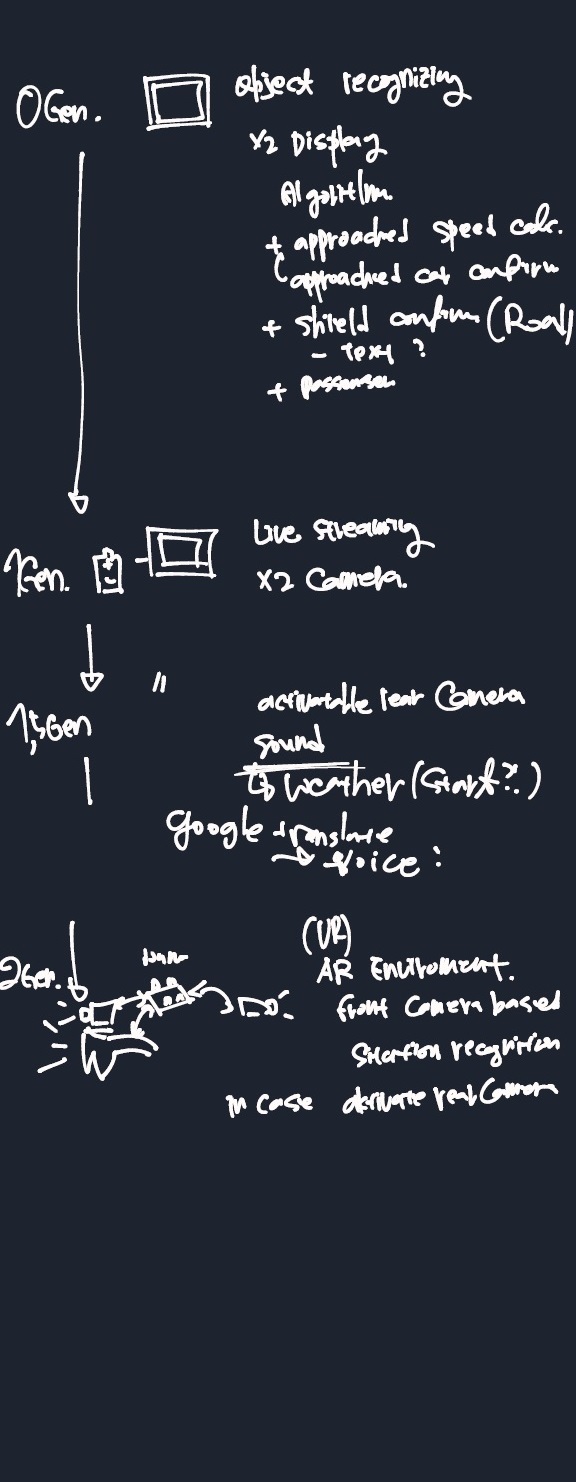 0Gen.
object recognizing
x2 Display
Algorithm.
+ approached speed calc.
approached car confirm
+ shield confirm (Road)
- Text ?
+ passenger
1Gen.
Live streaming
x2 Camera.
1.5Gen
"
activatable rear Camera
sound
↳ Weather (Start?)
google translate
→ voice :
2Gen.
(VR)
AR Enviroment.
front Camera based
recognition
in case activate rear Camera